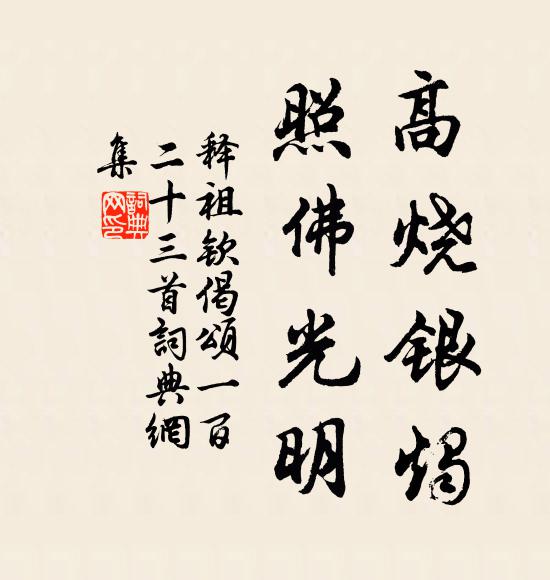 高烧银烛
照佛光明
释祖钦偈頌一百
二十三首詞典網
集
詞典
网印